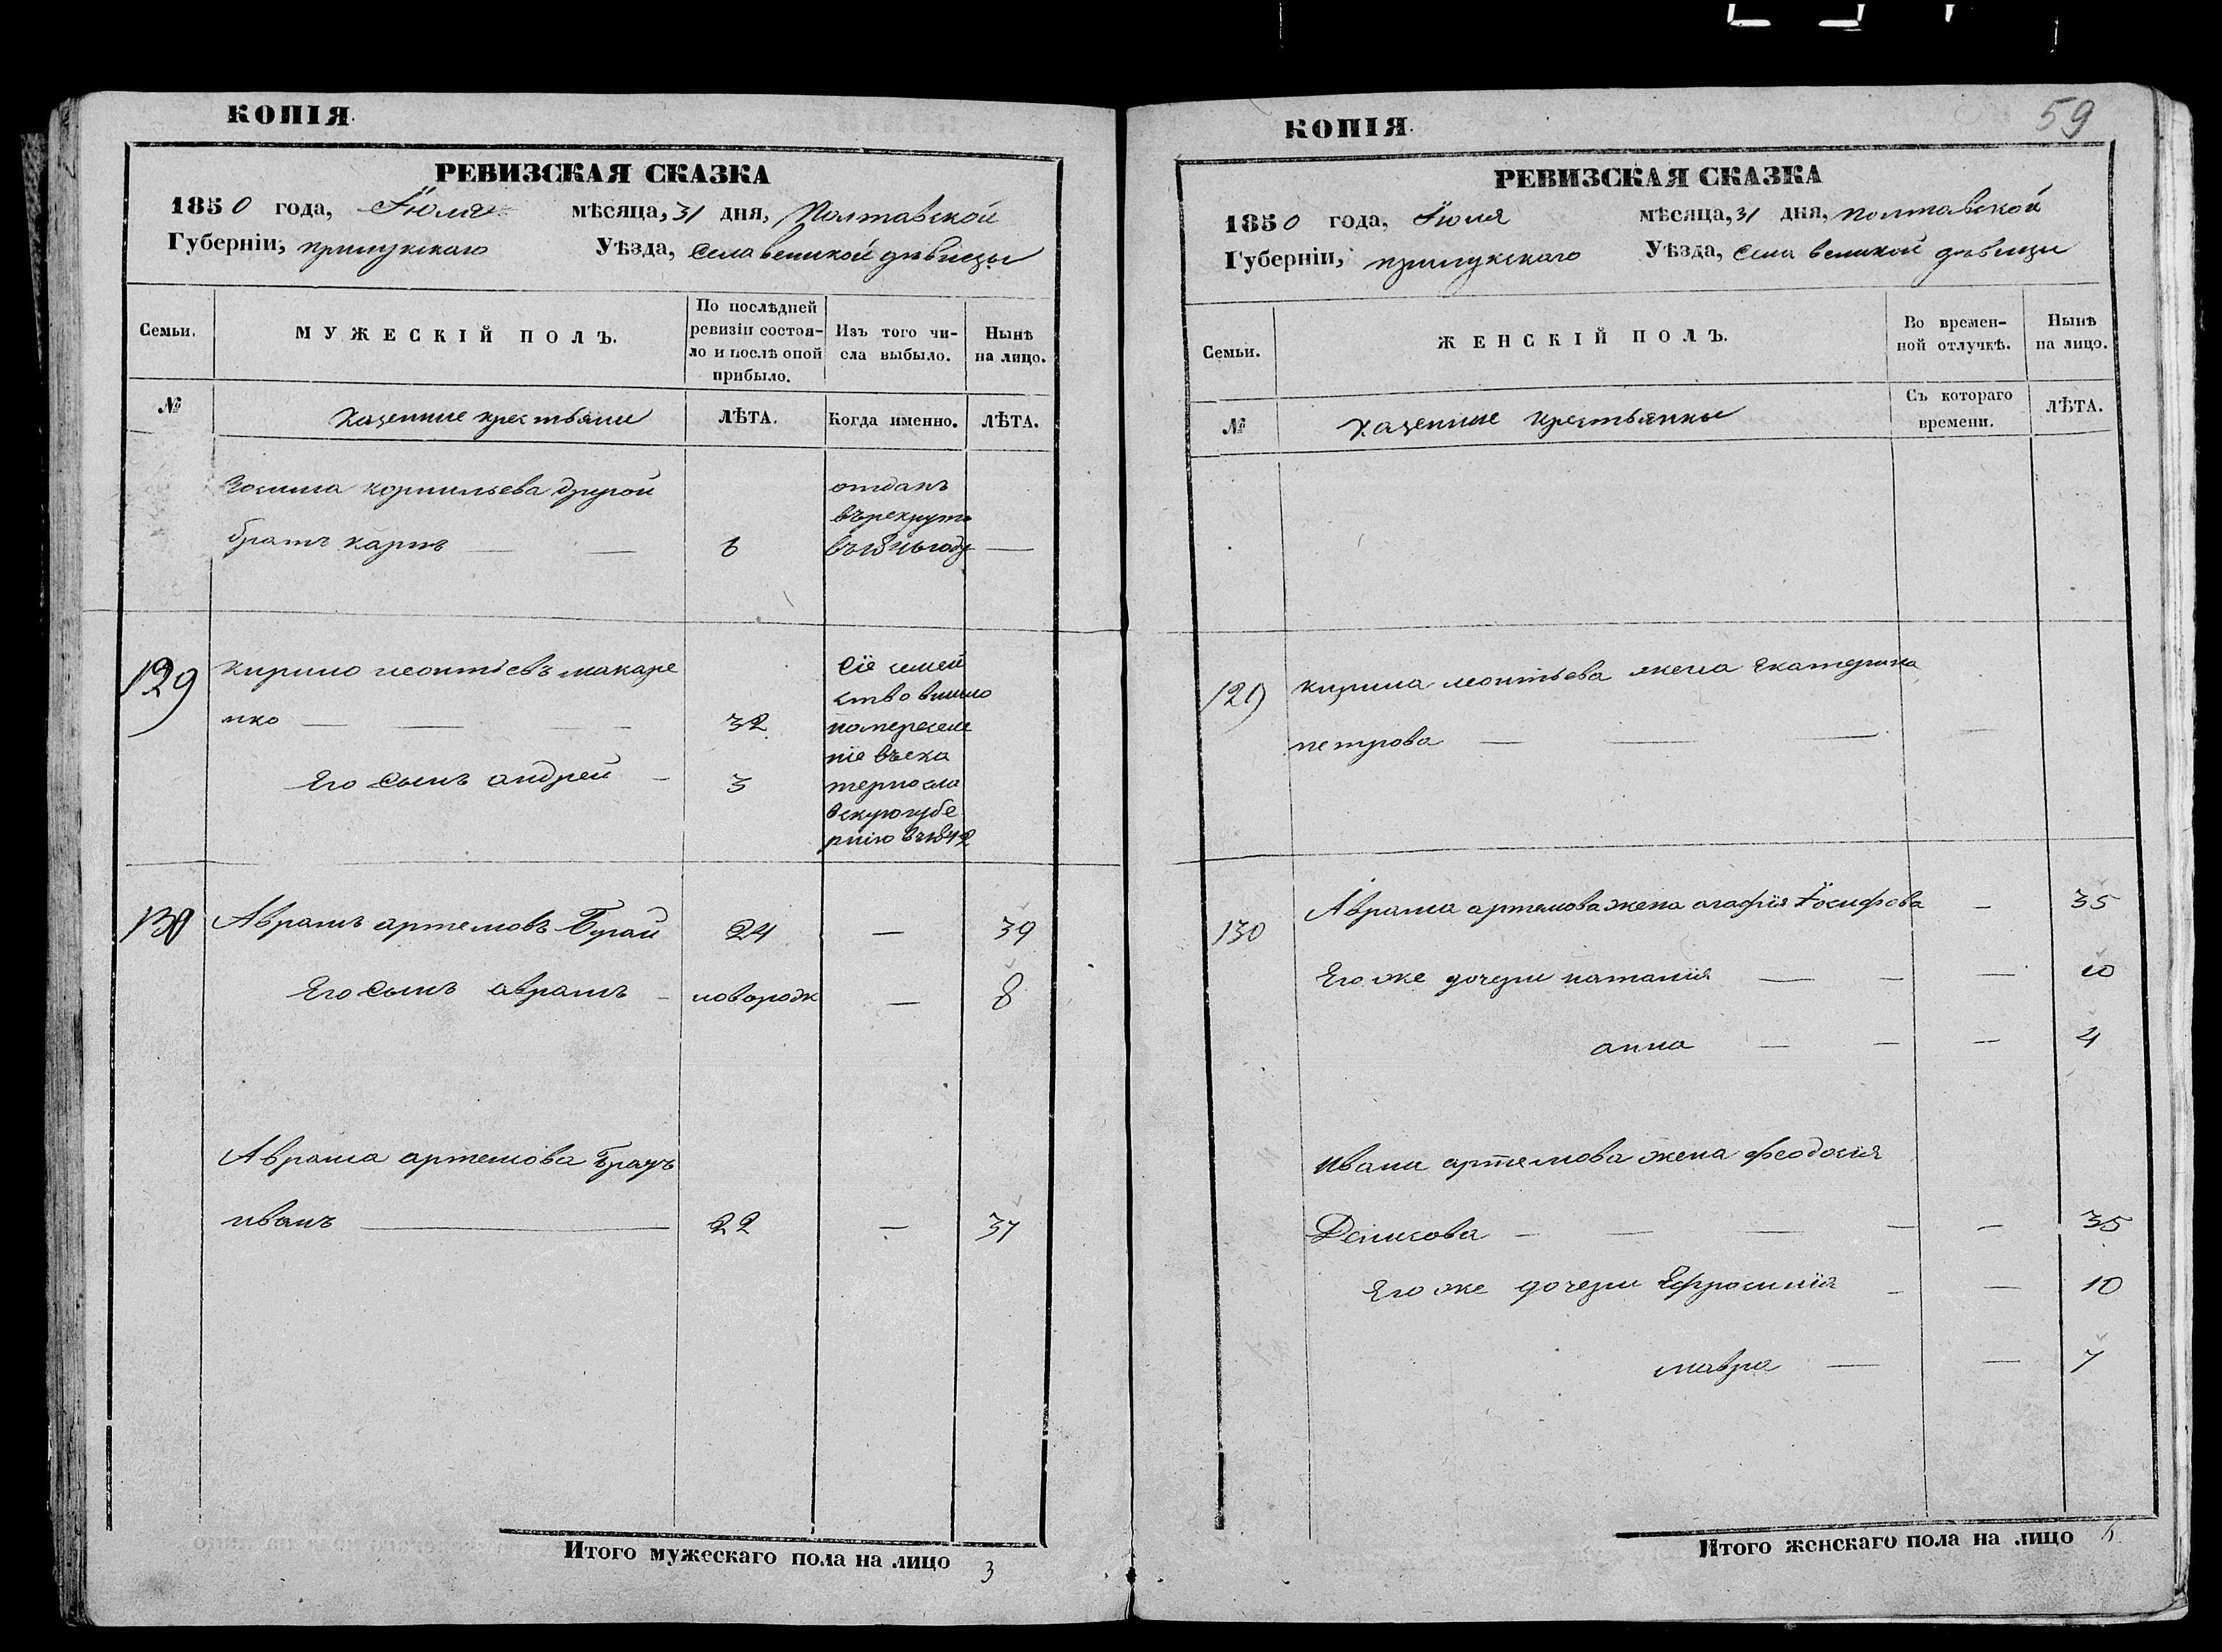 КОПІЯ.
РЕВИЗСКАЯ СКАЗКА
1850 года, Іюля мѣсяца, 31 дня, Полтавской
Губерніи, прилукскаго Уѣзда, Села великой дѣвицы
Семьи.
МУЖЕСКІЙ ПОЛЪ.
По послѣдней
ревизіи состоя-
ло и послѣ оной
прибыло.
Изъ того чи-
сла выбыло.
Нынѣ
на лицо.
№
Казенние крестьяни
ЛѢТА.
Когда именно.
ЛѢТА.
корнильева другой
братъ карпъ — — 6 —
отданъ
върекруты
129 кирило леонтіевъ макаре
нко — — — 32
Его Сынъ андрей — 3
Сіе семей
ство вишло
попереселе
ніе въека
теринсла
вскуюгубе
рнію въ1842
130 Аврамъ артемовъ Бугай 24 — 39
Его Сынъ аврамъ — новорожд — 8
Аврама артемова братъ
иванъ — 22 — 37
Итого мужескаго пола на лицо 3
59
КОПІЯ.
РЕВИЗСКАЯ СКАЗКА
1850 года, Іюля мѣсяца, 31 дня, полтавской
Губерніи, прилукскаго Уѣзда, Села великой дѣвицы
Семьи.
ЖЕНСКІЙ ПОЛЪ.
Во времен-
ной отлучкѣ.
Нынѣ
на лицо.
№
Казенние крестьянки
Съ котораго
времени.
ЛѢТА.
129 кирила леонтьева жена Екатерина
петрова — — — —
130 Аврама артемова жена агафія Іосифова — 35
Его же дочери наталія — — — 10
анна — — — 4
ивана артемова жена феодосія
Денисова — — — — — 35
Его же дочери Ефросинія — — 10
мавра — — 7
Итого женскаго пола на лицо 6